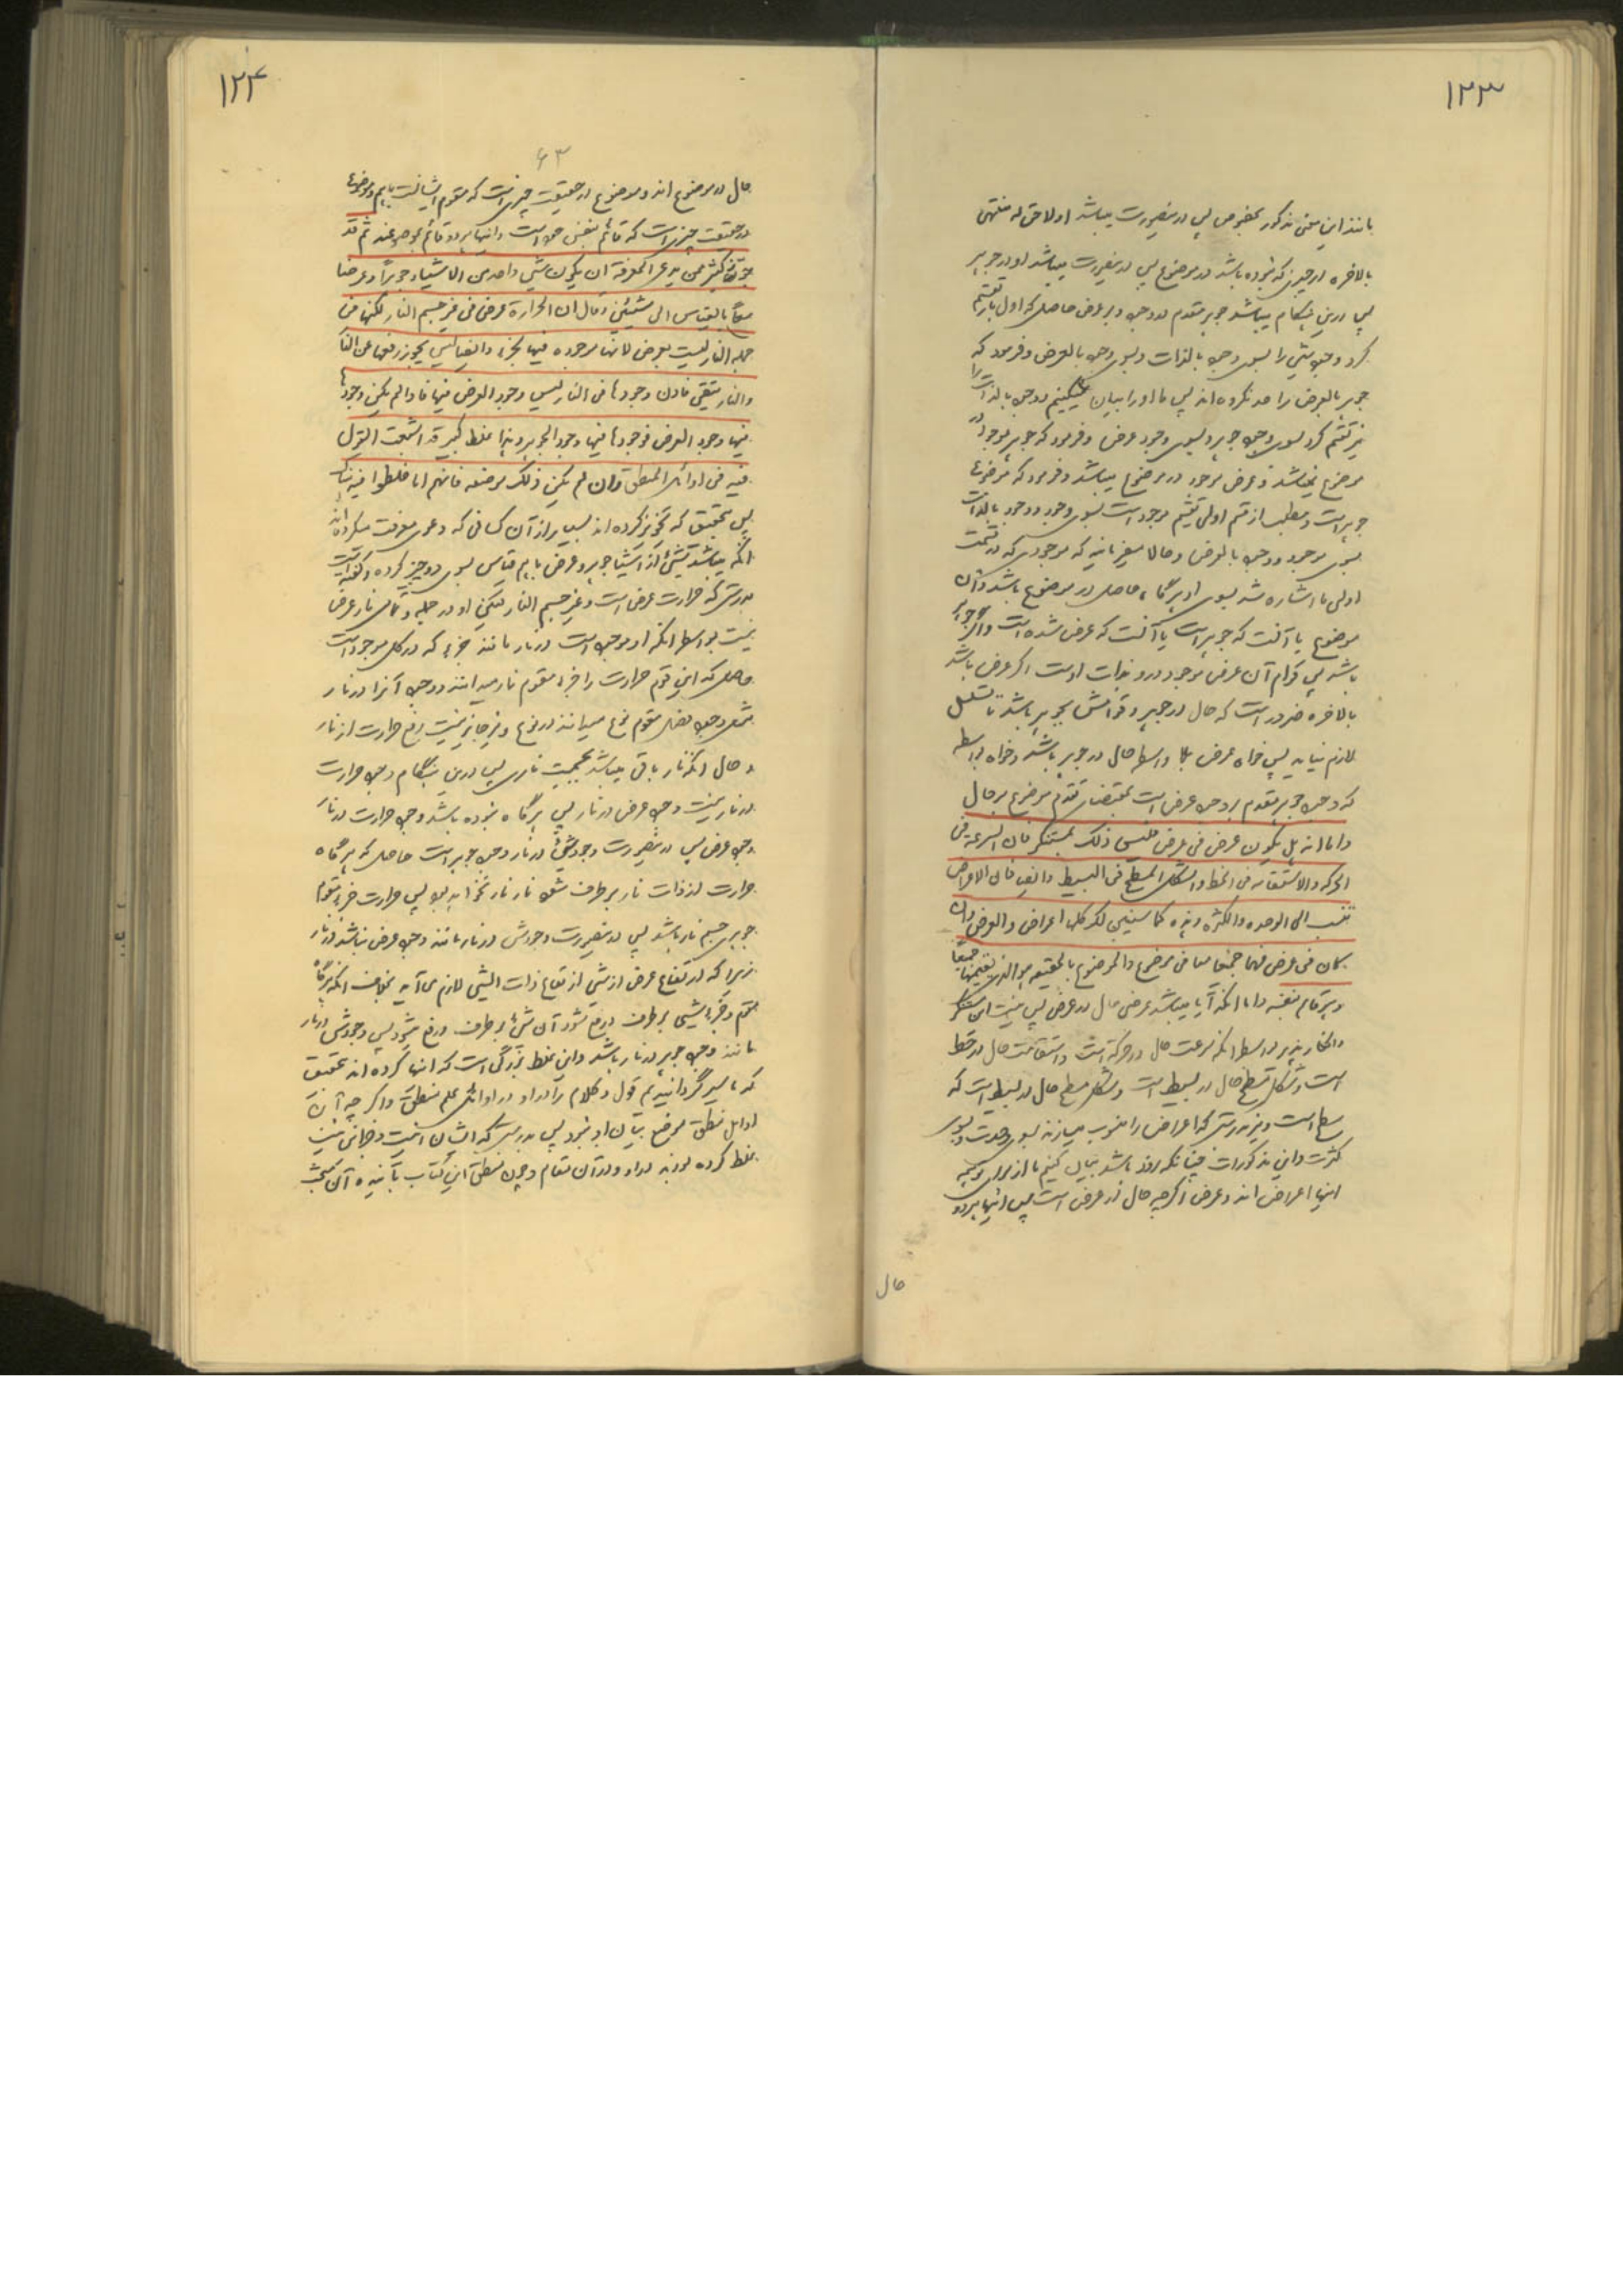 ۱۲۳
مانند این معنی مذکور بخصوص پس درینصورت میباشد اولا حق له منتهی
بالاخره در چیزی که نبوده باشد در موضوع پس درینصورت میباشد او در جوهر
پس درین هنگام میباشد جوهر مقدم در وجود بر عرض حاصل که اول بار تقسیم
کرد وجود شیئ را بسوی وجود بالذات و بسوی وجود بالعرض و فرمود که
وجود بالعرض را حد نکرده اند پس ما او را بیان میکنیم وجود بالذات را
نیز تقسیم کرد بسوی وجود جوهر و بسوی وجود عرض و فرمود که جوهر موجود در
موضوع نمیباشد و عرض موجود در موضوع میباشد و فرمود که موضوع
جوهر است و مطلب از قسم اولی تقسیم موجود است بسوی وجود بالذات
بسوی موجود بالعرض و حالا میفرماید که موجودی که در قسمت
اولی ما اشاره شد بسوی او هرگاه حاصل در موضوع باشد و آن
موضوع یا آنست که جوهر است یا آنست که عرض شده است و اگر جوهر
باشد پس قوام آن عرض موجود در او بذات اوست اگر عرض باشد
بالاخره ضرور است که حال در جوهر و قوامش بجوهر باشد تا تسلسل
لازم نیاید پس خواه عرض بلا واسطه حال در جوهر باشد و خواه بواسطه
که وجود جوهر مقدم بر وجود عرض است بمقتضای تقدم موضوع بر حال
و اما انه هل یکون عرض فی عرض فلیس ذلک بمستنکر فان السرعه فی
الحرکه و الاستقامه فی الخط و الشکل المسطح فی البسیط و ایضا فان الاعراض
تنسب الی الوحده و الکثره و هذه کما سنبین لک کلها اعراض و العرض و ان
کان فی عرض فهما جمیعا معا فی موضوع و الموضوع بالحقیقه هو الذی یقیمهما جمیعا
و هو قائم بنفسه و اما انکه آیا میباشد عرض حال در عرض پس نیست این مستنکر
و انکار پذیر بواسطه انکه سرعت حال در حرکة است و استقامت حال در خط
است و شکل مسطح حال در بسیط است و شکل مسطح حال در بسیط است که
سطح است و نیز بدرستی که اعراض را منسوب میسازند بسوی وحدت و بسوی
کثرت و این مذکورات چنانکه زود باشد بیان کنیم ما از برای تو همه
اینها اعراض اند و عرض اگرچه حال در عرض است پس اینها هر دو
حال
۱۲۴
۶۳
حال در موضوع اند و موضوع در حقیقت چیزی است که مقوم ایشانست باهم و موضوع
در حقیقت چیزی است که قائم بنفس خود است و اینها هر دو قائم بموضوعند ثم قد
جوز کثیر ممن یدعی المعرفة ان یکون شیئ واحد من الاشیاء جوهرا و عرضا
معاً بالقیاس الی شیئین فقال ان الحرارة عرض فی غیر جسم النار لکنها فی
جملة النار لیست بعرض لانها موجوده فیها کجزء و ایضا لیس یجوز رفعها عن النار
و النار تبقی فاذن وجودها فی النار لیس وجود العرض فیها فاذا لم یکن وجودها
فیها وجود العرض فوجودها فیها وجود الجوهر و هذا غلط کبیر قد اشبعنا القول
فیه فی اوائل المنطق و ان لم یکن ذلک موضعه فانهم انما غلطوا فیه هناک
پس بتحقیق که تجویز کرده اند بسیار از آن کسانی که دعوی معرفت میکرده اند
انکه میباشد شیئ از اشیا جوهر و عرض باهم بقیاس بسوی دو چیز کرده و گفته است
بدرستی که حرارت عرض است در غیر جسم النار لیکن او در جمله و تمامی نار عرض
نیست بواسطه انکه او موجود است در نار مانند جزء که در کل موجود است
حاصل که این قوم حرارت را جزء مقوم نار میدانند و وجود آنرا در نار
مثل وجود فصل مقوم نوع میدانند در نوع و نیز جایز نیست رفع حرارت از نار
و حال انکه نار باقی میباشد بحجمیت ناری پس درین هنگام وجود حرارت
در نار نیست وجود عرض در نار پس هرگاه نبوده باشد وجود حرارت در نار
وجود عرض پس درینصورت وجودش در نار وجود جوهر است حاصل که هرگاه
حرارت از ذات نار برطرف شود نار نار نخواهد بود پس حرارت جزء مقوم
جوهری جسم نار باشد پس درینصورت وجودش در نار مانند وجود عرض نباشد در نار
زیرا که از رفع عرض از شیئ ارتفاع ذات الشیئ لازم نمی آید بخلاف انکه هرگاه
مقوم و جزء شیئی برطرف و رفع شود آن شیئ برطرف و رفع میشود پس وجودش در نار
مانند وجود جوهر در نار باشد و این غلط بزرگی است که اینها کرده اند بتحقیق
که ما سیر گردانیدیم قول و کلام را در او در اوائل علم منطق و اگر چه آن
اوایل منطق موضع بیان او نبود پس بدرستی که ایشان اینست و جز این نیست
غلط کرده بودند در او در آن مقام و چون منطق این کتاب بآنید آن مبحث